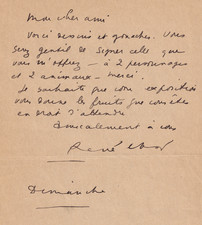 Mon cher ami
Voici dessins et gouaches. Vous
serez gentil de signer celle que
vous m'offrez – à 2 personnages
et 2 animaux – merci.
Je souhaite que votre exposition
vous donne les fruits que vous êtes
en droit d'attendre
Amicalement à vous
René
Dimanche